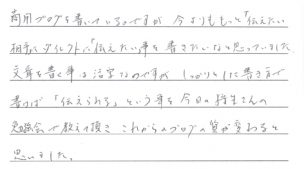 商用ブログを書いているのですが 今よりももっと「伝えたい
相手にダイレクトに「伝えたい事を書きたいなと思っていました
文章を書く事は苦手なのですが しっかりとした書き方で
書けば 「伝えられる」という事を今日の 先生さんの
勉強会で教えて頂き これからのブログの質が変わると
思いました。